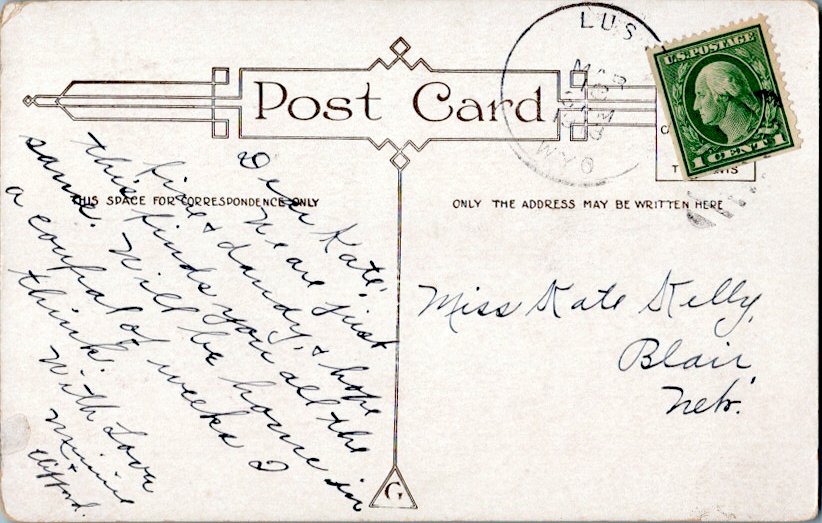 Post Card
THIS SPACE FOR CORRESPONDENCE ONLY
ONLY THE ADDRESS MAY BE WRITTEN HERE
LUS
MAR
10
WYO
U.S. POSTAGE
1 CENT 1
Dear Kate:
We are just
fine & dandy, & hope
this finds you all the
same. Will be home in
a coupal of weeks I
think.
With Love
Minnie
+
Clifford.
Miss Kate Kelly,
Blair,
Nebr.
G